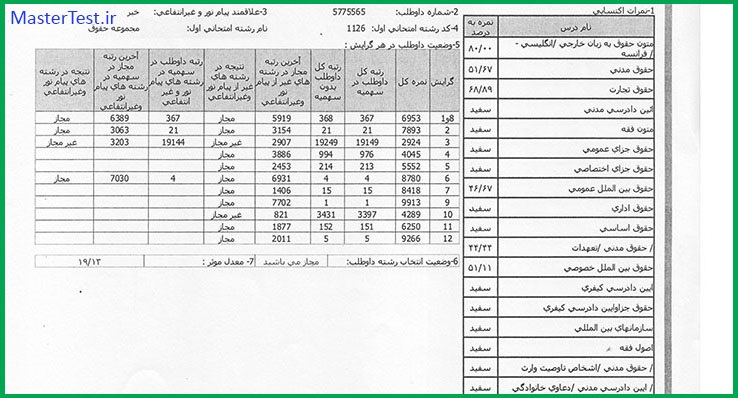 MasterTest.ir
1-نمرات اکتسابي
2-شماره داوطلب: 5775565
3-علاقمند پیام نور و غیرانتفاعي: خیر
4-کد رشته امتحاني اول: 1126
نام رشته امتحاني اول: مجموعه حقوق
5-وضعیت داوطلب در هر گرایش :
نام درس | نمره به درصد
متون حقوق به زبان خارجي /انگلیسي - / فرانسه | ۸۰/۰۰
حقوق مدني | ۵۱/۶۷
حقوق تجارت | ۶۸/۸۹
ائین دادرسي مدني | سفید
متون فقه | سفید
حقوق جزاي عمومي | سفید
حقوق جزاي اختصاصي | سفید
حقوق بین الملل عمومي | ۴۶/۶۷
حقوق اداري | سفید
حقوق اساسي | سفید
/ حقوق مدني /تعهدات | ۴۴/۴۴
حقوق بین الملل خصوصي | ۵۱/۱۱
ایین دادرسي کیفري | سفید
حقوق جزاوایین دادرسي کیفري | سفید
سازمانهاي بین المللي | سفید
اصول فقه | سفید
/ حقوق مدني /اشخاص تاوصیت وارث | سفید
/ ایین دادرسي مدني /دعاوي خانوادگي | سفید
گرایش | نمره کل | رتبه کل داوطلب در سهمیه | رتبه کل داوطلب بدون سهمیه | آخرین رتبه مجاز در رشته هاي غیر از پیام نور وغیرانتفاعي | نتیجه در رشته هاي غیر از پیام نور وغیرانتفاعي | رتبه داوطلب در سهمیه در رشته هاي پیام نور و غیر انتفاعي | آخرین رتبه مجاز در سهمیه در رشته هاي پیام نور وغیرانتفاعي | نتیجه در رشته هاي پیام نور وغیرانتفاعي
1و8 | 6953 | 367 | 368 | 5919 | مجاز | 367 | 6389 | مجاز
2 | 7893 | 21 | 21 | 3154 | مجاز | 21 | 3063 | مجاز
3 | 2924 | 19149 | 19249 | 2907 | غیر مجاز | 19144 | 3203 | غیر مجاز
4 | 4045 | 976 | 994 | 3886 | مجاز
5 | 5552 | 213 | 214 | 2453 | مجاز
6 | 8780 | 4 | 4 | 6931 | مجاز | 4 | 7030 | مجاز
7 | 8418 | 15 | 15 | 1406 | مجاز
9 | 9913 | 1 | 1 | 7702 | مجاز
10 | 4289 | 3397 | 3431 | 821 | غیر مجاز
11 | 6250 | 151 | 152 | 1877 | مجاز
12 | 9266 | 5 | 5 | 2011 | مجاز
6-وضعیت انتخاب رشته داوطلب: مجاز مي باشید
7- معدل موثر : ۱۹/۱۳